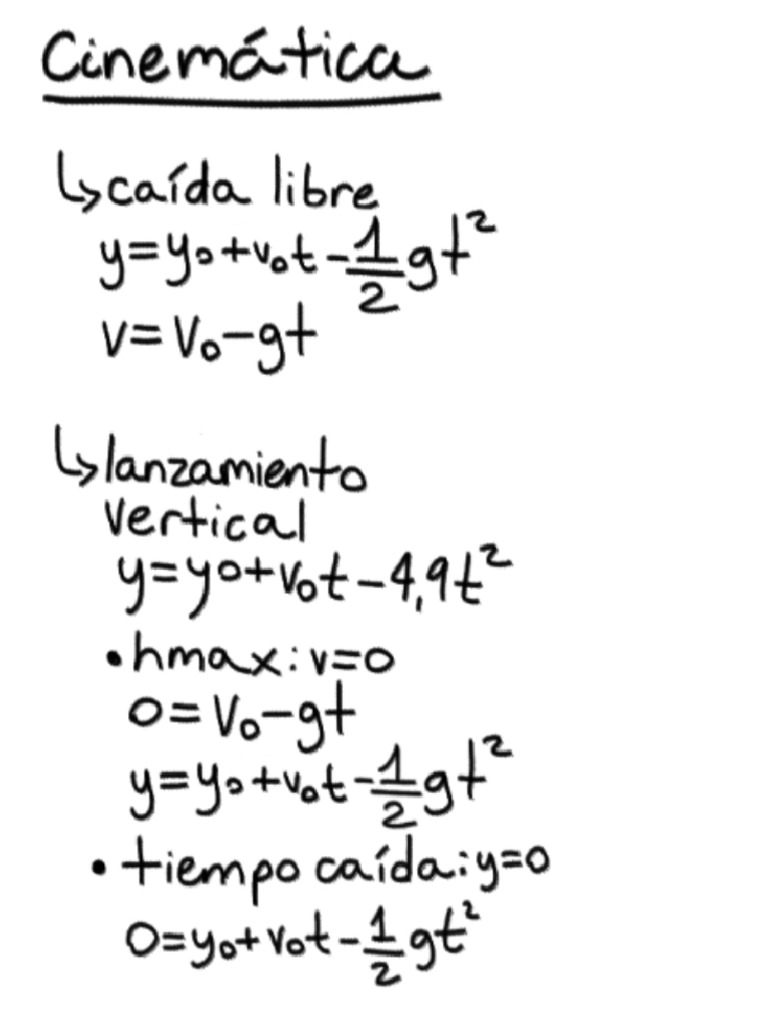 Cinemática
↳caída libre
y=y₀+v₀t-1/2gt²
v=V₀-gt
↳lanzamiento
vertical
y=y₀+v₀t-4,9t²
•hmax:v=0
0=V₀-gt
y=y₀+v₀t-1/2gt²
•tiempo caída:y=0
0=y₀+v₀t-1/2gt²